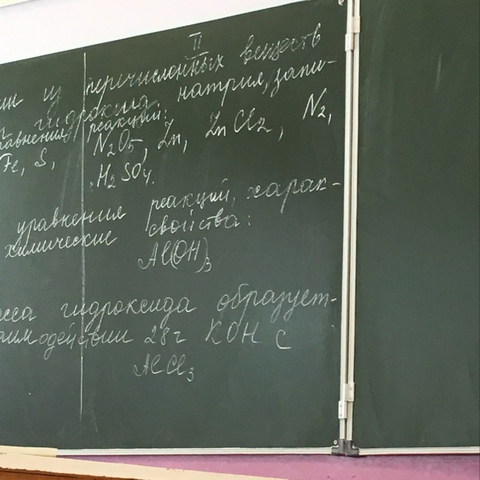 II
ми из перечисленных веществ
гидроксид натрия, запи-
равнения реакций:
Fe, S, N₂O₅, Zn, ZnCl₂, N₂,
H₂SO₄.
уравнения реакций, харак-
химические свойства:
Al(OH)₃
сса гидроксида образует-
аимодействии 28 г KOH с
AlCl₃